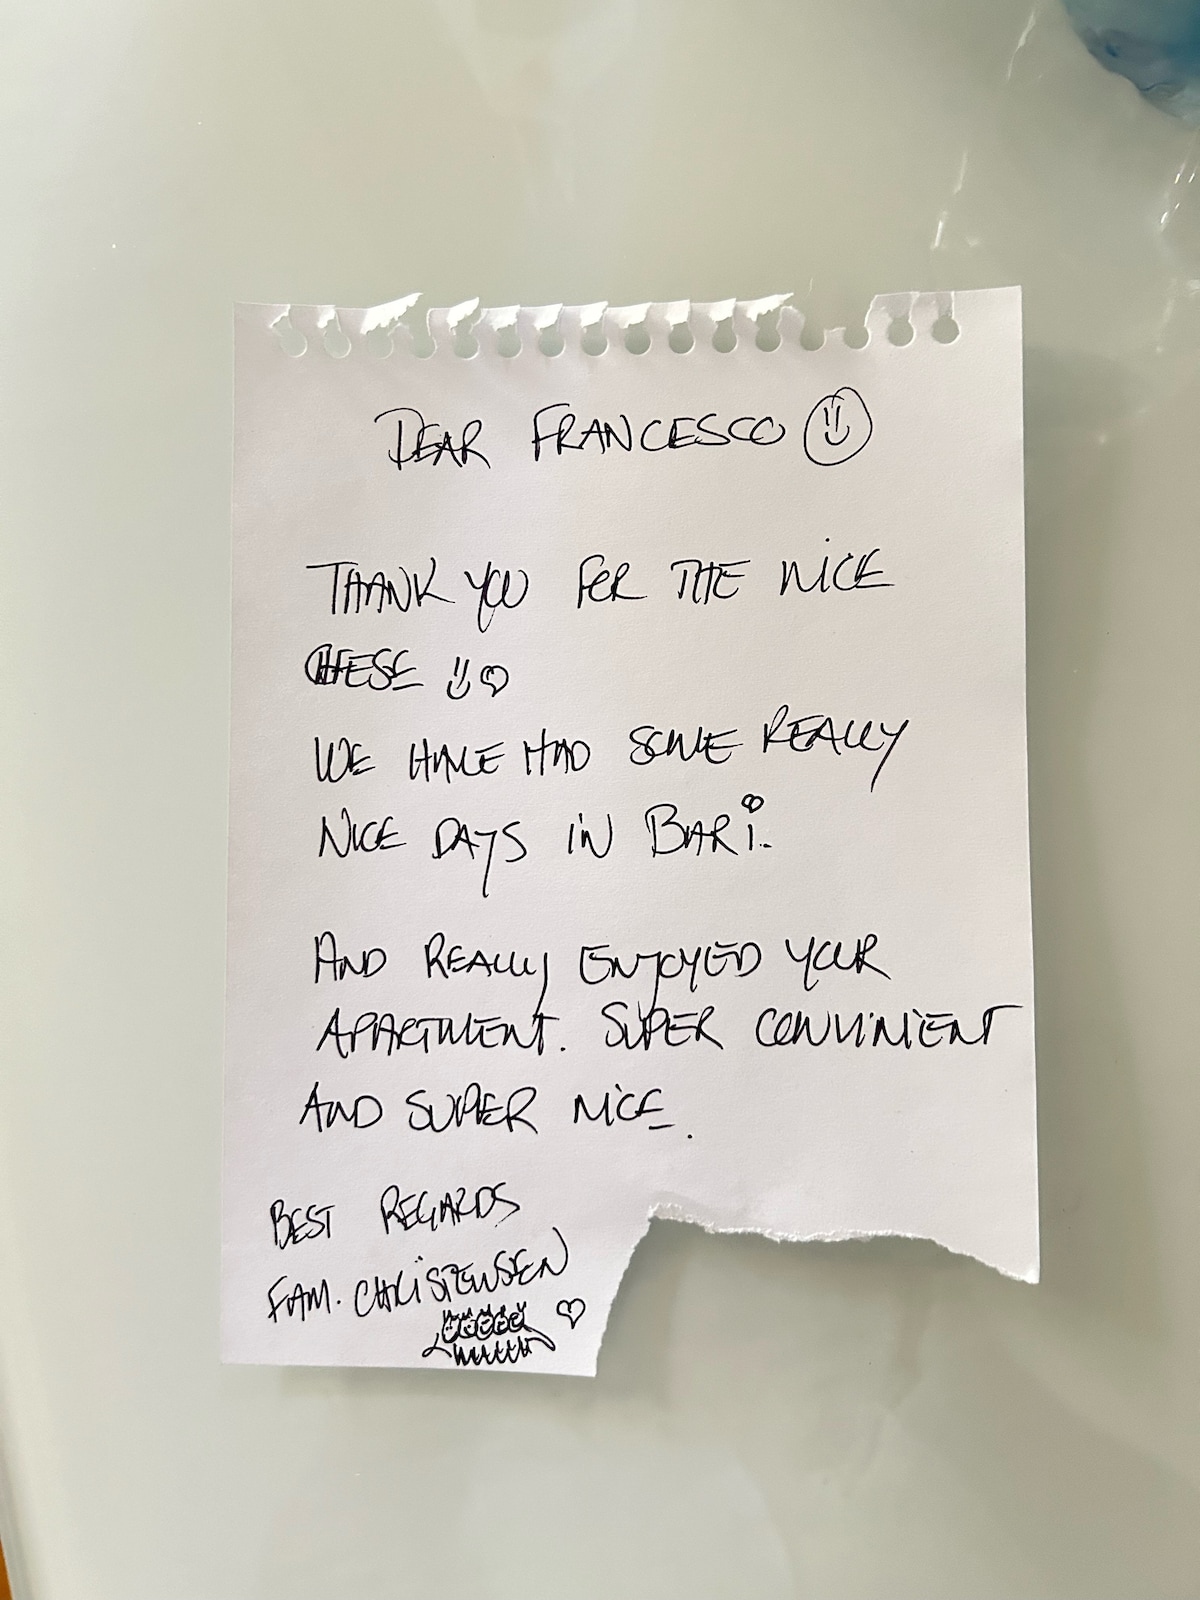 DEAR FRANCESCO
THANK YOU FOR THE NICE
CHEESE
WE HAVE HAD SOME REALLY
NICE DAYS IN BARI..
AND REALLY ENJOYED YOUR
APARTMENT. SUPER CONVINIENT
AND SUPER NICE.
BEST REGARDS
FAM. CHRISTENSEN